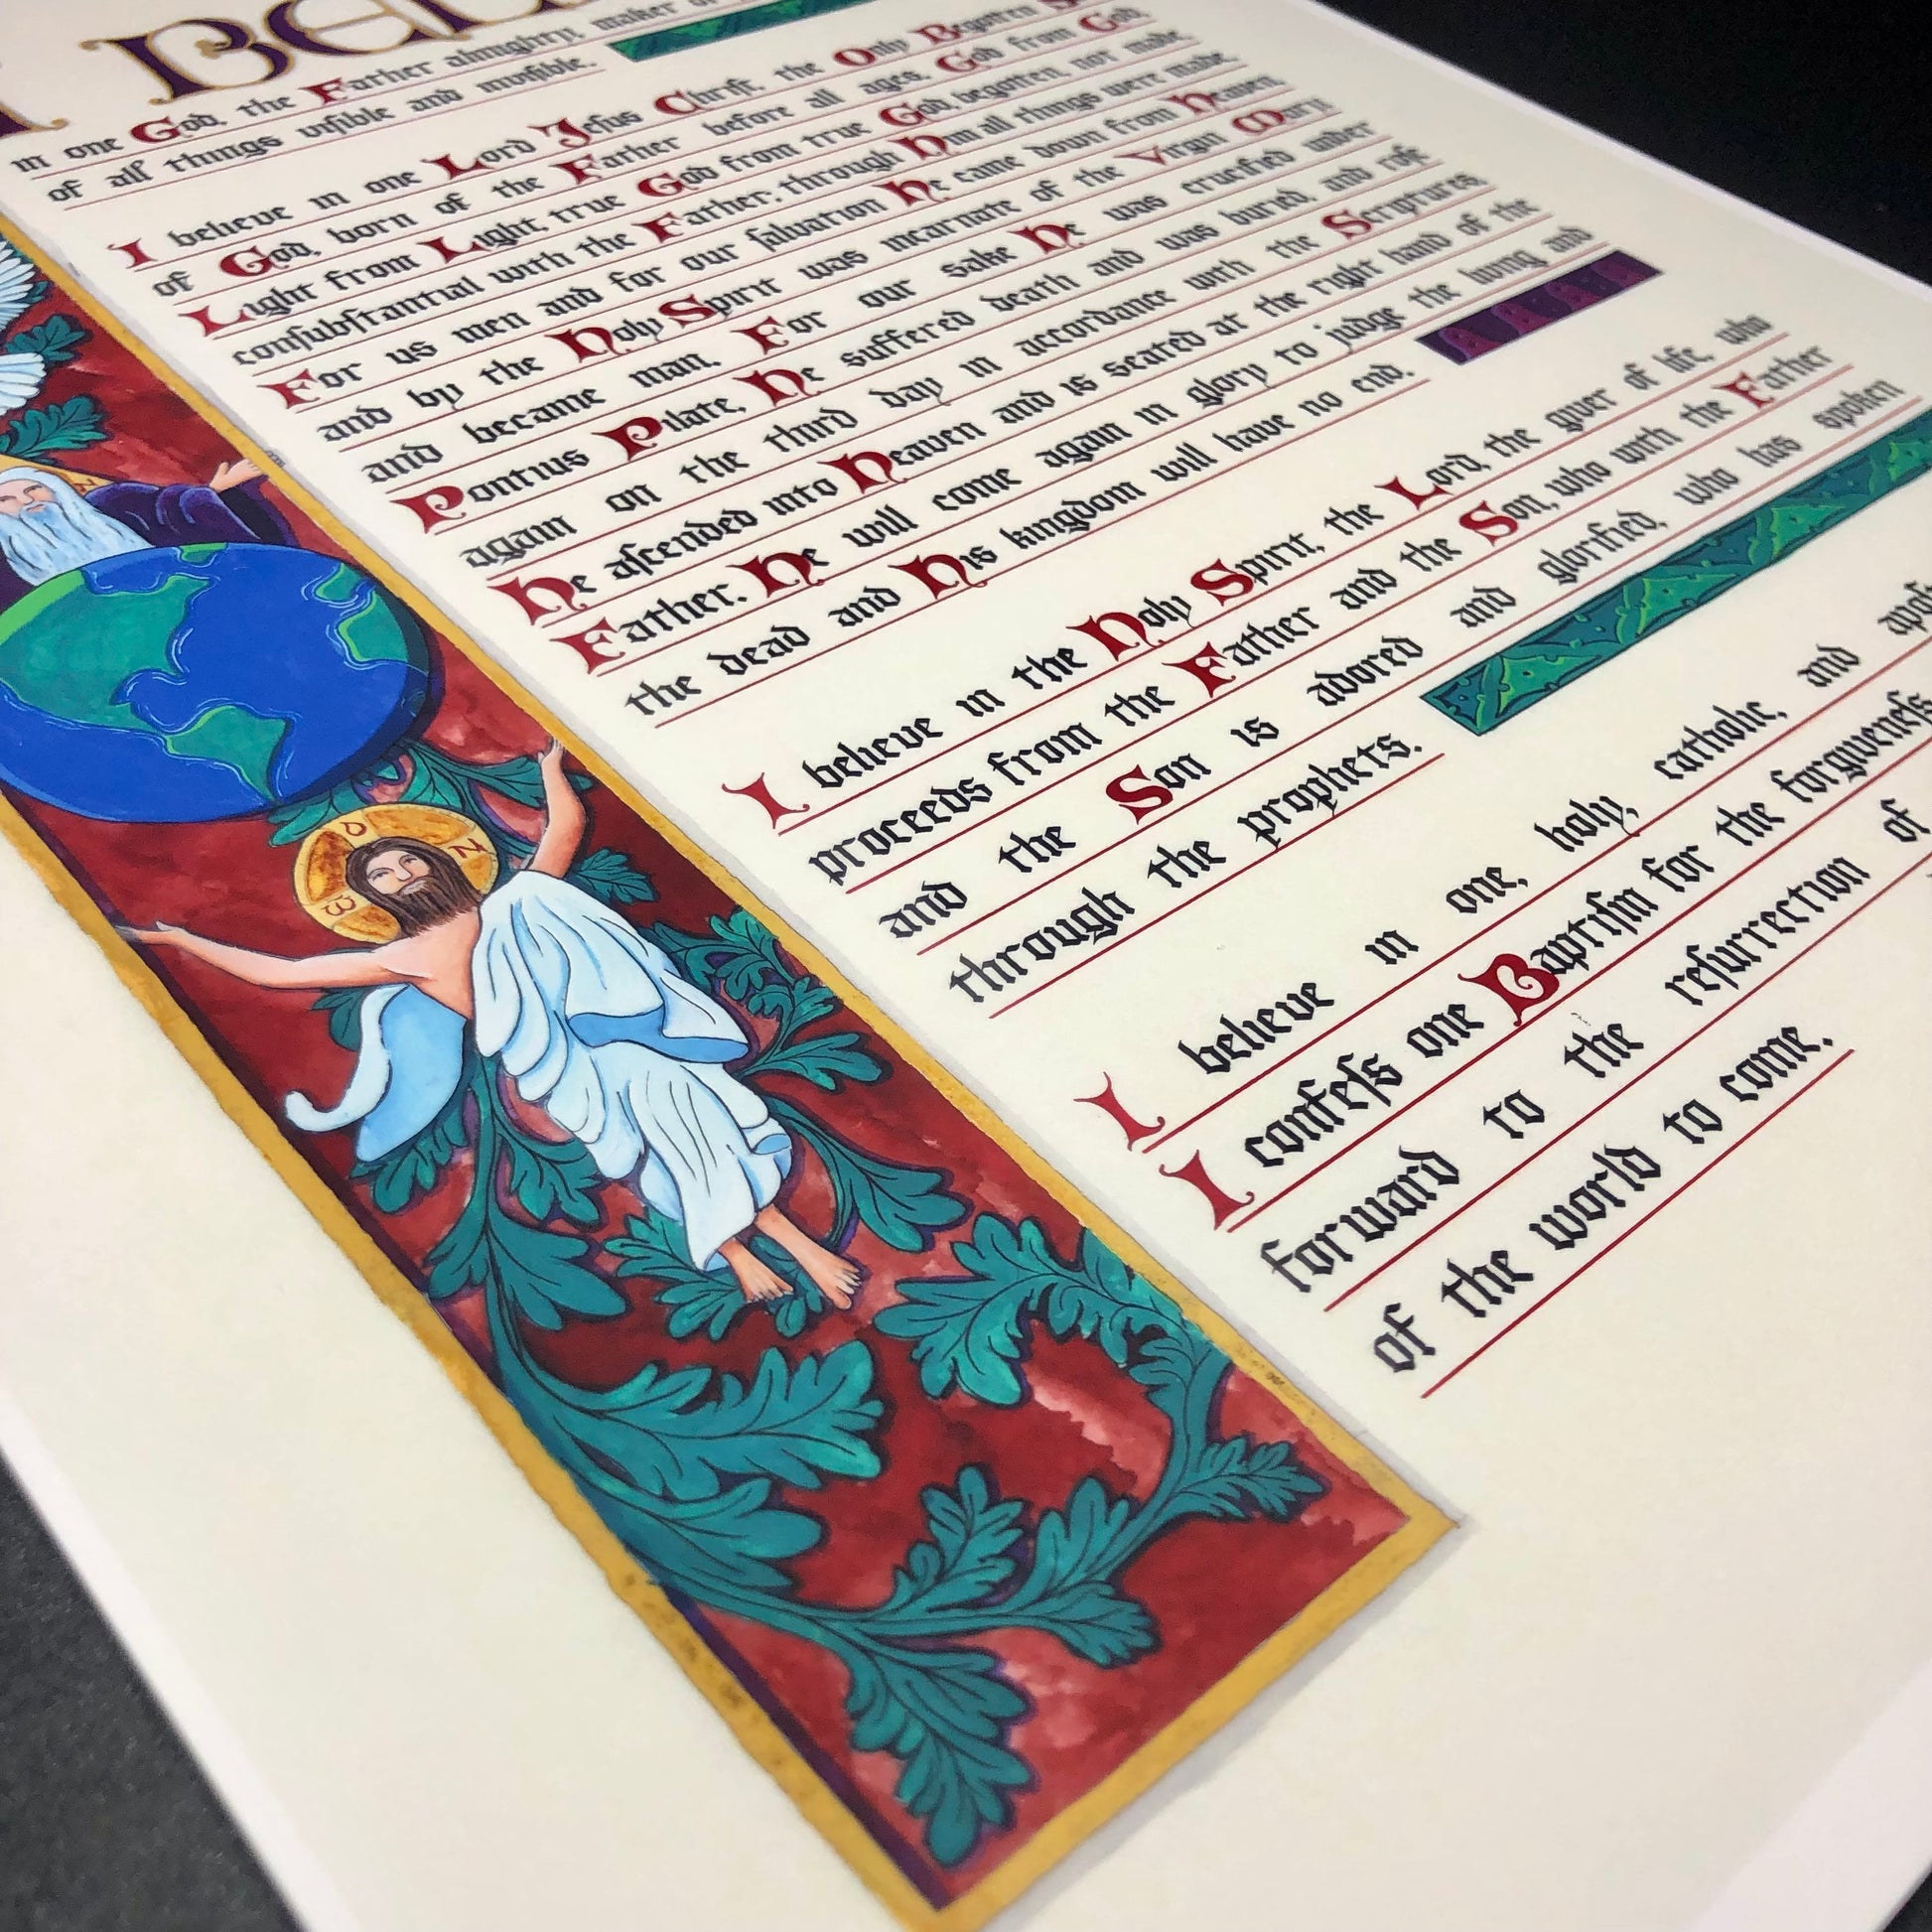 I BEL
in one God, the Father almighty, maker of
of all things viſible and inviſible.
I believe in one Lord Jeſus Chriſt, the Only Begotten
of God, born of the Father before all ages. God from God,
Light from Light, true God from true God, begotten, not made,
conſubſtantial with the Father; through Him all things were made.
For us men and for our ſalvation He came down from Heaven,
and by the Holy Spirit was incarnate of the Virgin Mary
and became man. For our sake He was crucified under
Pontius Pilate, He suffered death and was buried, and roſe
again on the third day in accordance with the Scriptures.
He aſcended into Heaven and is seated at the right hand of the
Father. He will come again in glory to judge the living and
the dead and His kingdom will have no end.
I believe in the Holy Spirit, the Lord, the giver of life, who
proceeds from the Father and the Son, who with the Father
and the Son is adored and glorified, who has spoken
through the prophets.
I believe in one, holy, catholic, and apoſ
I confeſs one Baptiſm for the forgiveneſs
forward to the reſurrection of
of the world to come.
ω O N